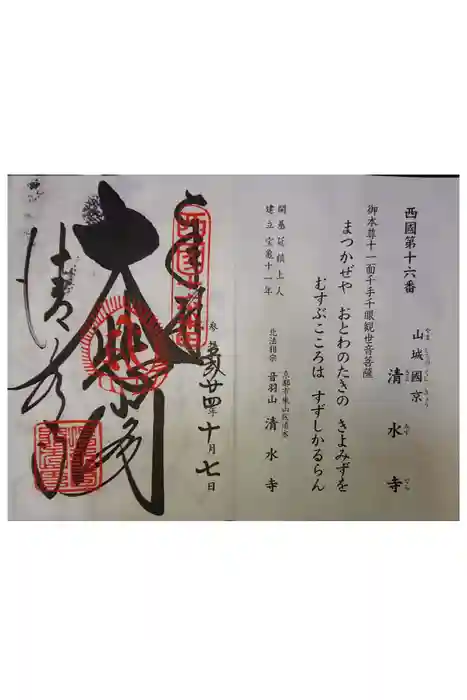 西國第十六番
やましろのくに きょう
山城國京 清水寺
きよ みず でら
御本尊十一面千手千眼観世音菩薩
まつかぜや おとわのたきの きよみずを
むすぶこころは すずしかるらん
開基 延鎮上人
建立 宝亀十一年
京都市東山区清水
北法相宗 音羽山 清水寺
奉拝
西國十六番
参拝 平成廿四年十月七日
大悲閣
清水寺